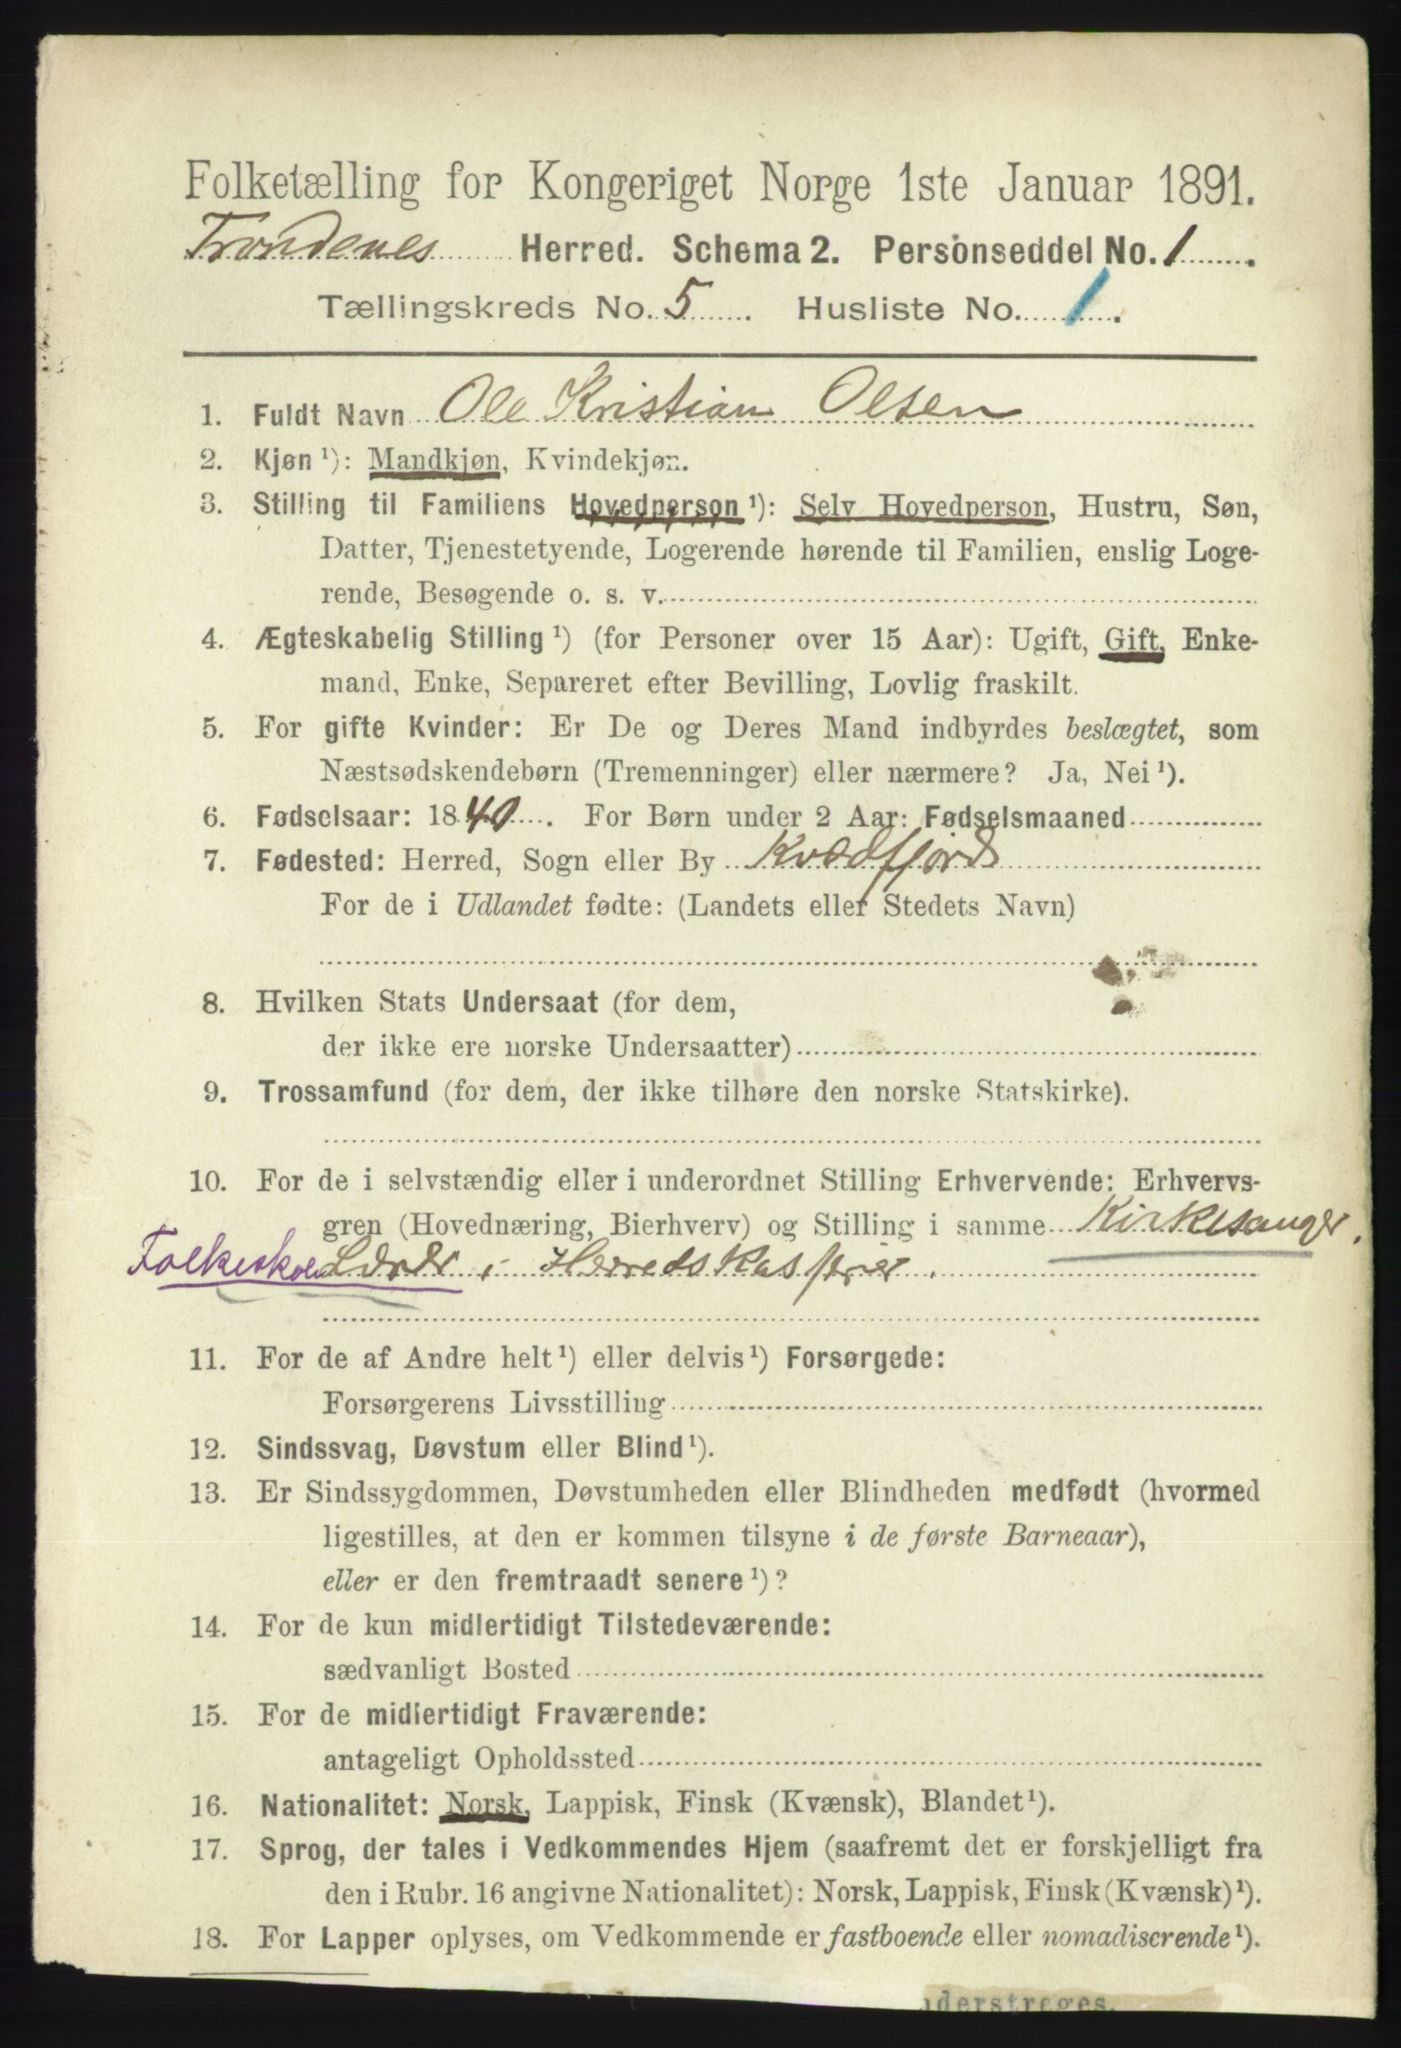 Folketælling for Kongeriget Norge 1ste Januar 1891.
Trondenes Herred. Schema 2. Personseddel No. 1.
Tællingskreds No. 5. Husliste No. 1.
1. Fuldt Navn Ole Kristian Olsen
2. Kjøn ¹): Mandkjøn, Kvindekjøn.
3. Stilling til Familiens Hovedperson ¹): Selv Hovedperson, Hustru, Søn,
Datter, Tjenestetyende, Logerende hørende til Familien, enslig Loge-
rende, Besøgende o. s. v.
4. Ægteskabelig Stilling ¹) (for Personer over 15 Aar): Ugift, Gift, Enke-
mand, Enke, Separeret efter Bevilling, Lovlig fraskilt.
5. For gifte Kvinder: Er De og Deres Mand indbyrdes beslægtet, som
Næstsødskendebørn (Tremenninger) eller nærmere? Ja, Nei ¹).
6. Fødselsaar: 1840. For Børn under 2 Aar: Fødselsmaaned
7. Fødested: Herred, Sogn eller By Kvædfjord
For de i Udlandet fødte: (Landets eller Stedets Navn)
8. Hvilken Stats Undersaat (for dem,
der ikke ere norske Undersaatter)
9. Trossamfund (for dem, der ikke tilhøre den norske Statskirke).
10. For de i selvstændig eller i underordnet Stilling Erhvervende: Erhvervs-
gren (Hovednæring, Bierhverv) og Stilling i samme Kirkesanger,
Folkeskole Lærer, Herredskasserer.
11. For de af Andre helt ¹) eller delvis ¹) Forsørgede:
Forsørgerens Livsstilling
12. Sindssvag, Døvstum eller Blind ¹).
13. Er Sindssygdommen, Døvstumheden eller Blindheden medfødt (hvormed
ligestilles, at den er kommen tilsyne i de første Barneaar),
eller er den fremtraadt senere ¹)?
14. For de kun midlertidigt Tilstedeværende:
sædvanligt Bosted
15. For de midlertidigt Fraværende:
antageligt Opholdssted
16. Nationalitet: Norsk, Lappisk, Finsk (Kvænsk), Blandet ¹).
17. Sprog, der tales i Vedkommendes Hjem (saafremt det er forskjelligt fra
den i Rubr. 16 angivne Nationalitet): Norsk, Lappisk, Finsk (Kvænsk) ¹).
18. For Lapper oplyses, om Vedkommende er fastboende eller nomadiserende ¹).
understreges.